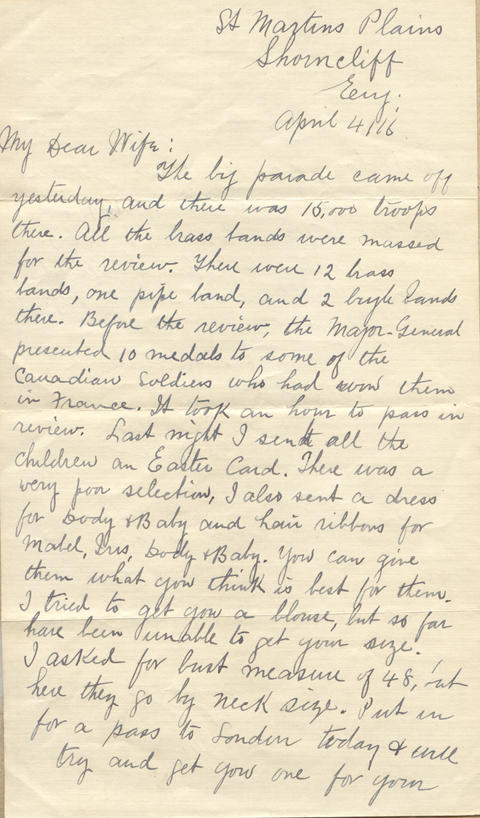 St Martins Plains
Shorncliff
Eng.
April 4/16
My Dear Wife:
The big parade came off
yesterday, and there was 15,000 troops
there. All the brass bands were massed
for the review. There were 12 brass
bands, one pipe band, and 2 bugle bands
there. Before the review, the Major-General
presented 10 medals to some of the
Canadian Soldiers who had won them
in France. It took an hour to pass in
review. Last night I sent all the
children an Easter Card. There was a
very poor selection, I also sent a dress
for Dody & Baby and hair ribbons for
Mabel, Iris, Dody & Baby. You can give
them what you think is best for them.
I tried to get you a blouse, but so far
have been unable to get your size.
I asked for bust measure of 48, but
here they go by neck size. Put in
for a pass to London today & will
try and get you one for your